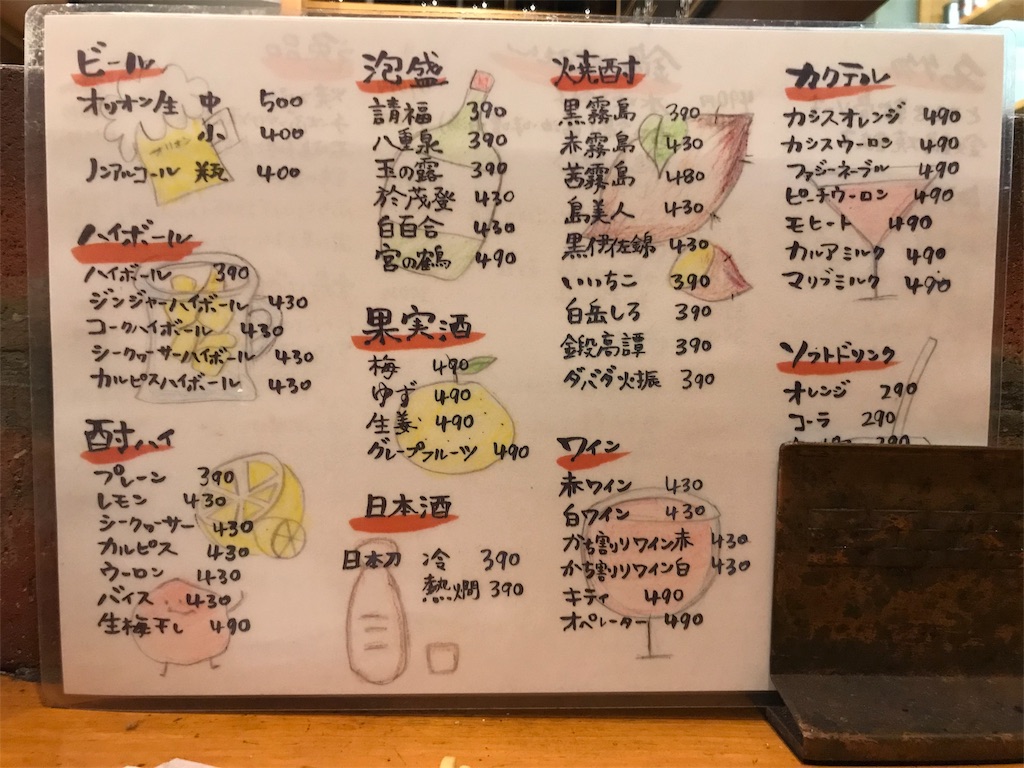 ビール
オリオン生 中 500
小 400
ノンアルコール 瓶 400
オリオン
ハイボール
ハイボール 390
ジンジャーハイボール 430
コークハイボール 430
シークヮーサーハイボール 430
カルピスハイボール 430
酎ハイ
プレーン 390
レモン 430
シークヮーサー 430
カルピス 430
ウーロン 430
バイス 430
生梅干し 490
泡盛
請福 390
八重泉 390
玉の露 390
於茂登 430
白百合 430
宮の鶴 490
果実酒
梅 490
ゆず 490
生姜 490
グレープフルーツ 490
日本酒
日本刀 冷 390
熱燗 390
焼酎
黒霧島 390
赤霧島 430
茜霧島 480
島美人 430
黒伊佐錦 430
いいちこ 390
白岳しろ 390
鍛高譚 390
ダバダ火振 390
ワイン
赤ワイン 430
白ワイン 430
かち割りワイン赤 430
かち割りワイン白 430
キティ 490
オペレーター 490
カクテル
カシスオレンジ 490
カシスウーロン 490
ファジーネーブル 490
ピーチウーロン 490
モヒート 490
カルアミルク 490
マリブミルク 490
ソフトドリンク
オレンジ 290
コーラ 290
290